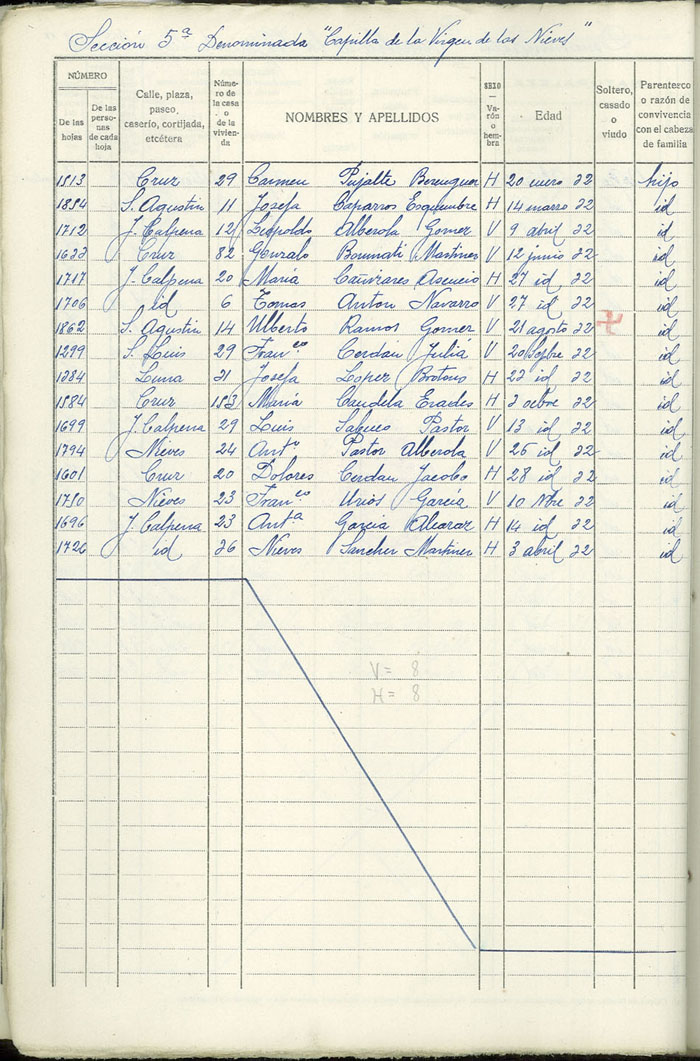 Sección 5ª Denominada "Capilla de la Virgen de las Nieves"
NÚMERO
De las hojas
De las personas de cada hoja
Calle, plaza, paseo, caserío, cortijada, etcétera
Número de la casa o de la vivienda
NOMBRES Y APELLIDOS
SEXO — Varón o hembra
Edad
Soltero, casado o viudo
Parentesco o razón de convivencia con el cabeza de familia
1513 Cruz 29 Carmen Pujalte Berenguer H 20 enero 22 hijo
1854 S. Agustin 11 Josefa Caparros Esquumbre H 14 marzo 22 id
1712 J. Calpena 12 Leopoldo Alberola Gomez V 9 abril 22 id
1633 Cruz 82 Gonzalo Bonmati Martinez V 12 junio 22 id
1717 J. Calpena 20 María Cañizares Asencio H 27 id 22 id
1706 id 6 Tomas Anton Navarro V 27 id 22 id
1862 S. Agustin 14 Alberto Ramos Gomez V 21 agosto 22 id
1299 S. Luis 29 Franco. Cerdán Juliá V 20 Sepbre 22 id
1384 Luna 31 Josefa Lopez Brotons H 23 id 22 id
1584 Cruz 153 María Candela Erades H 3 octbre 22 id
1699 J. Calpena 29 Luis Sabuco Pastor V 13 id 22 id
1794 Nieves 24 Antº Pastor Alberola V 26 id 22 id
1601 Cruz 20 Dolores Cerdan Jacobo H 28 id 22 id
1780 Nieves 23 Franco Urios García V 10 Nbre 22 id
1696 J. Calpena 23 Antª Garcia Alcaraz H 14 id 22 id
1726 id 36 Nieves Sanchez Martinez H 3 abril 22 id
V = 8
H = 8